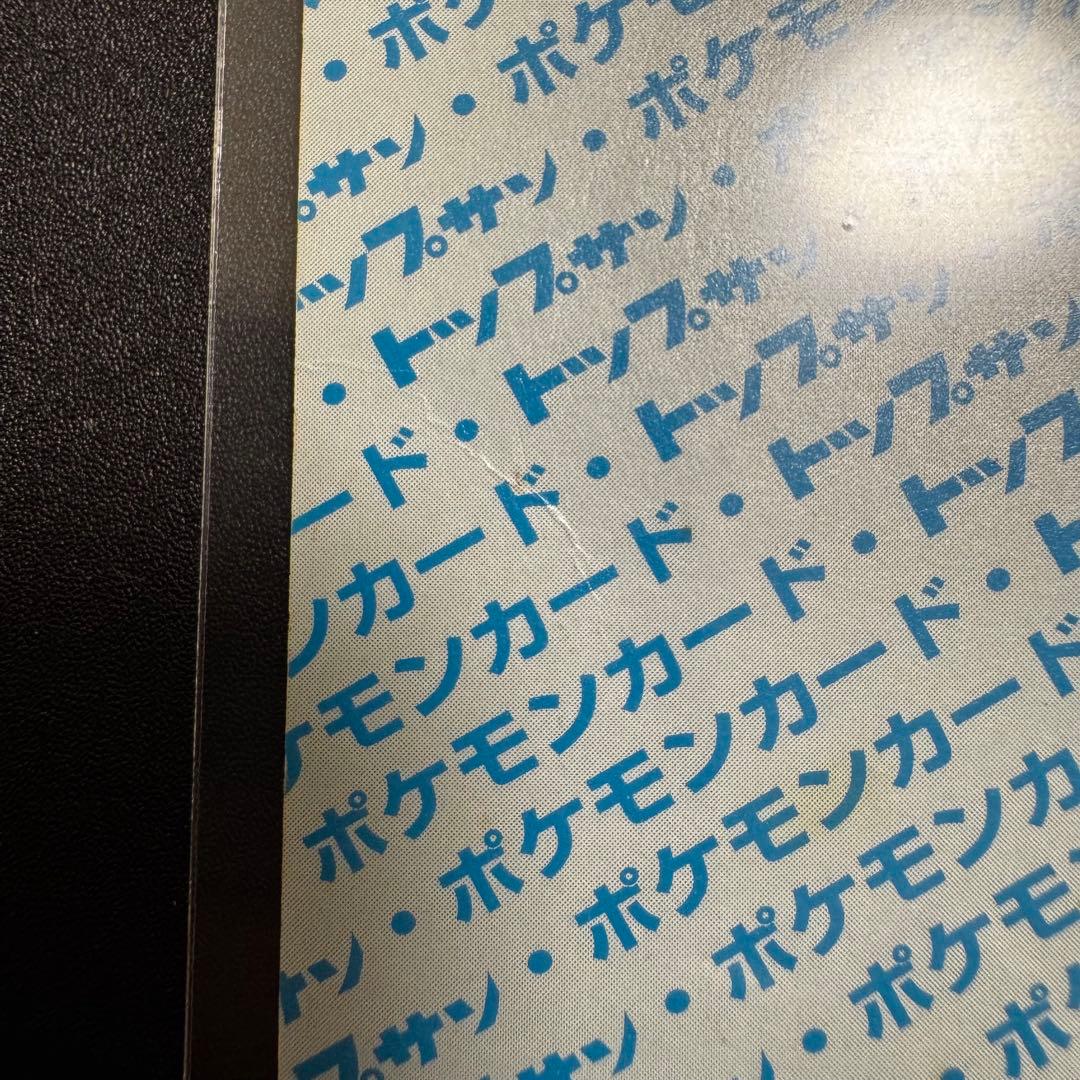 ・ポケ
サン・ポケ
ップサン・ポケモ
・トップサン・
ード・トップサン
ンカード・トップサン
ケモンカード・トップサン
ポケモンカード・トップ
サン・ポケモンカード・ト
プサン・ポケモンカード
サン・ポケモンカ
・ポケモ
ポ